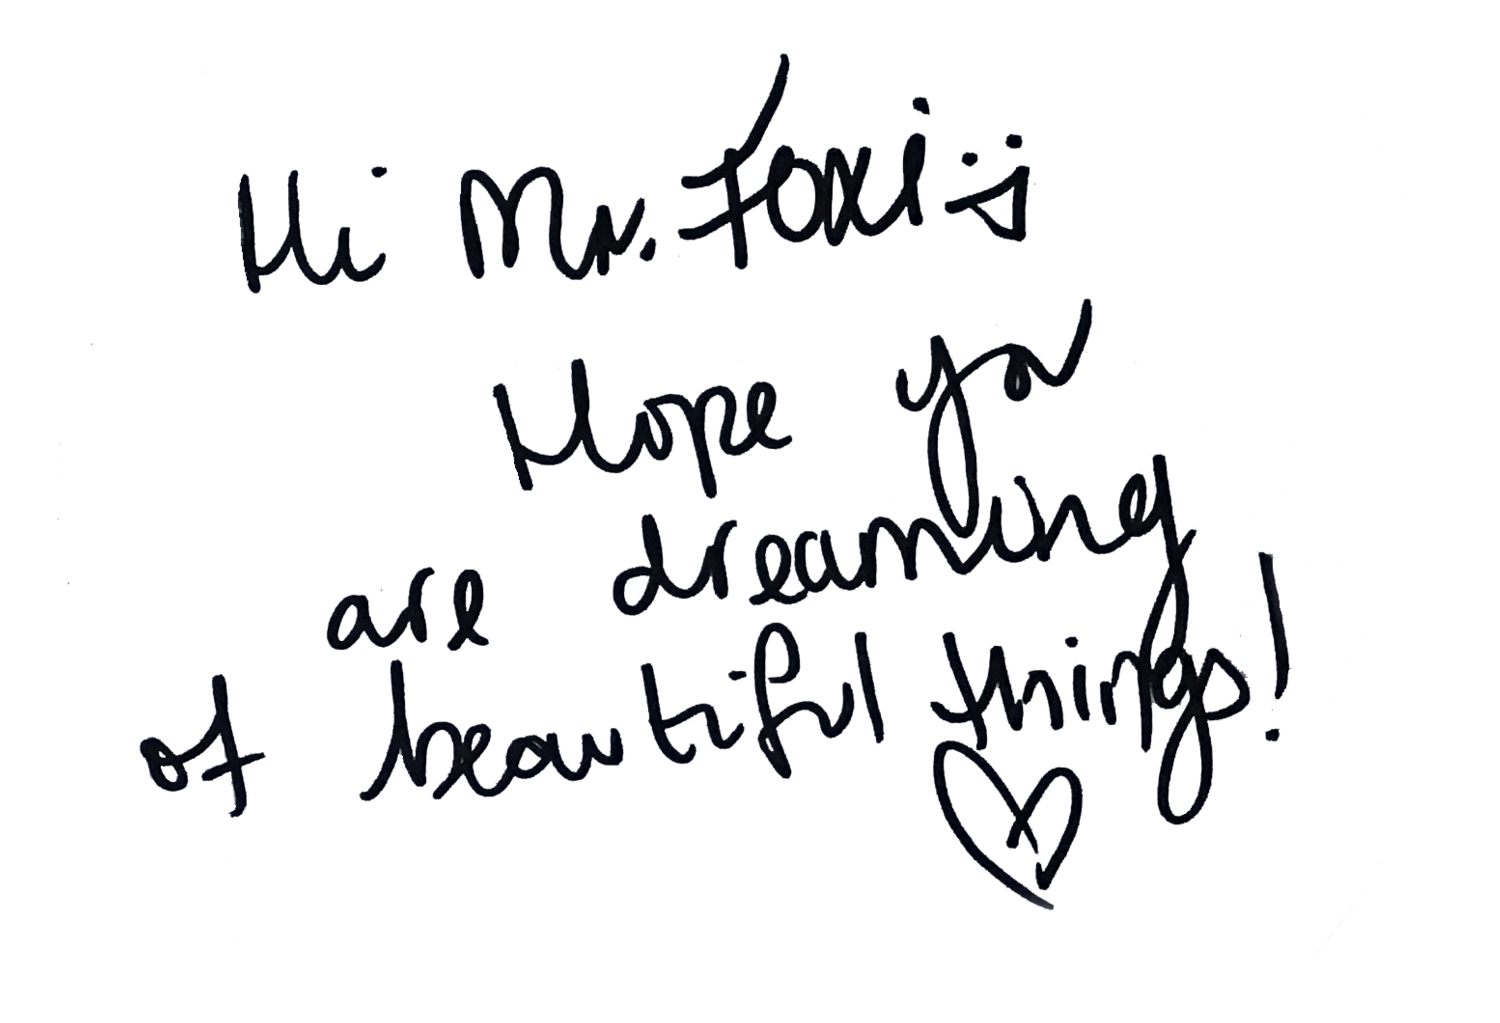 Hi Mr. Foxi
Hope you
are dreaming
of beautiful things!